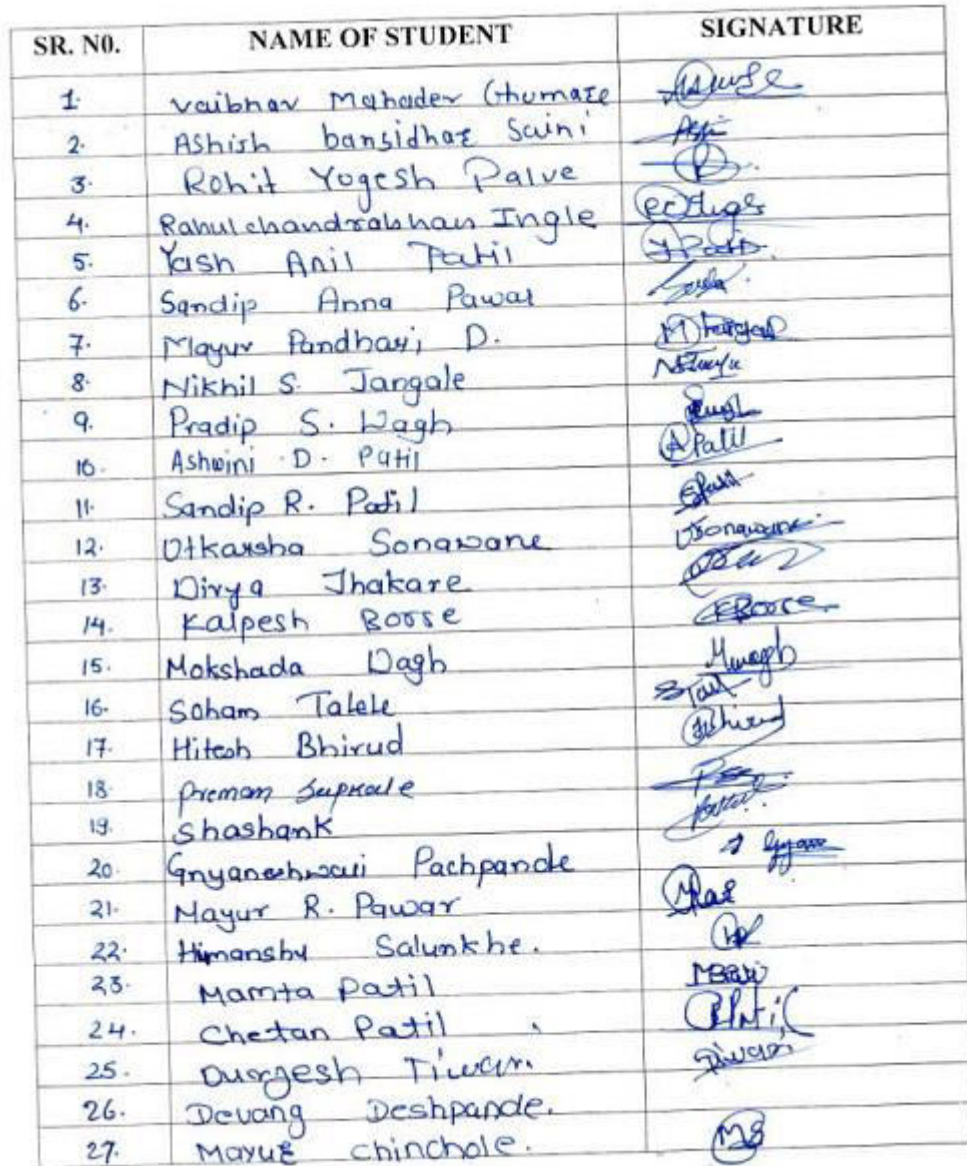 SR. N0. NAME OF STUDENT SIGNATURE
1. Vaibhav Mahadev Ghumare
2. Ashish bansidhar Saini
3. Rohit Yogesh Palve
4. Rahul chandrabhan Ingle
5. Yash Anil Patil
6. Sandip Anna Pawar
7. Mayur Pandhari D.
8. Nikhil S. Jangale
9. Pradip S. Wagh
10. Ashwini D. Patil A Patil
11. Sandip R. Patil
12. Utkarsha Sonawane USonawane
13. Divya Thakare
14. Kalpesh Borse KBorse
15. Mokshada Wagh Mwagh
16. Soham Talele
17. Hitesh Bhirud HBhirud
18. Premam
19. Shashank
20. Gnyaneshwari Pachpande
21. Mayur R. Pawar
22. Himanshu Salunkhe.
23. Mamta Patil
24. Chetan Patil CPatil
25. Durgesh Tiwari Tiwari
26. Devang Deshpande.
27. Mayur chinchole.